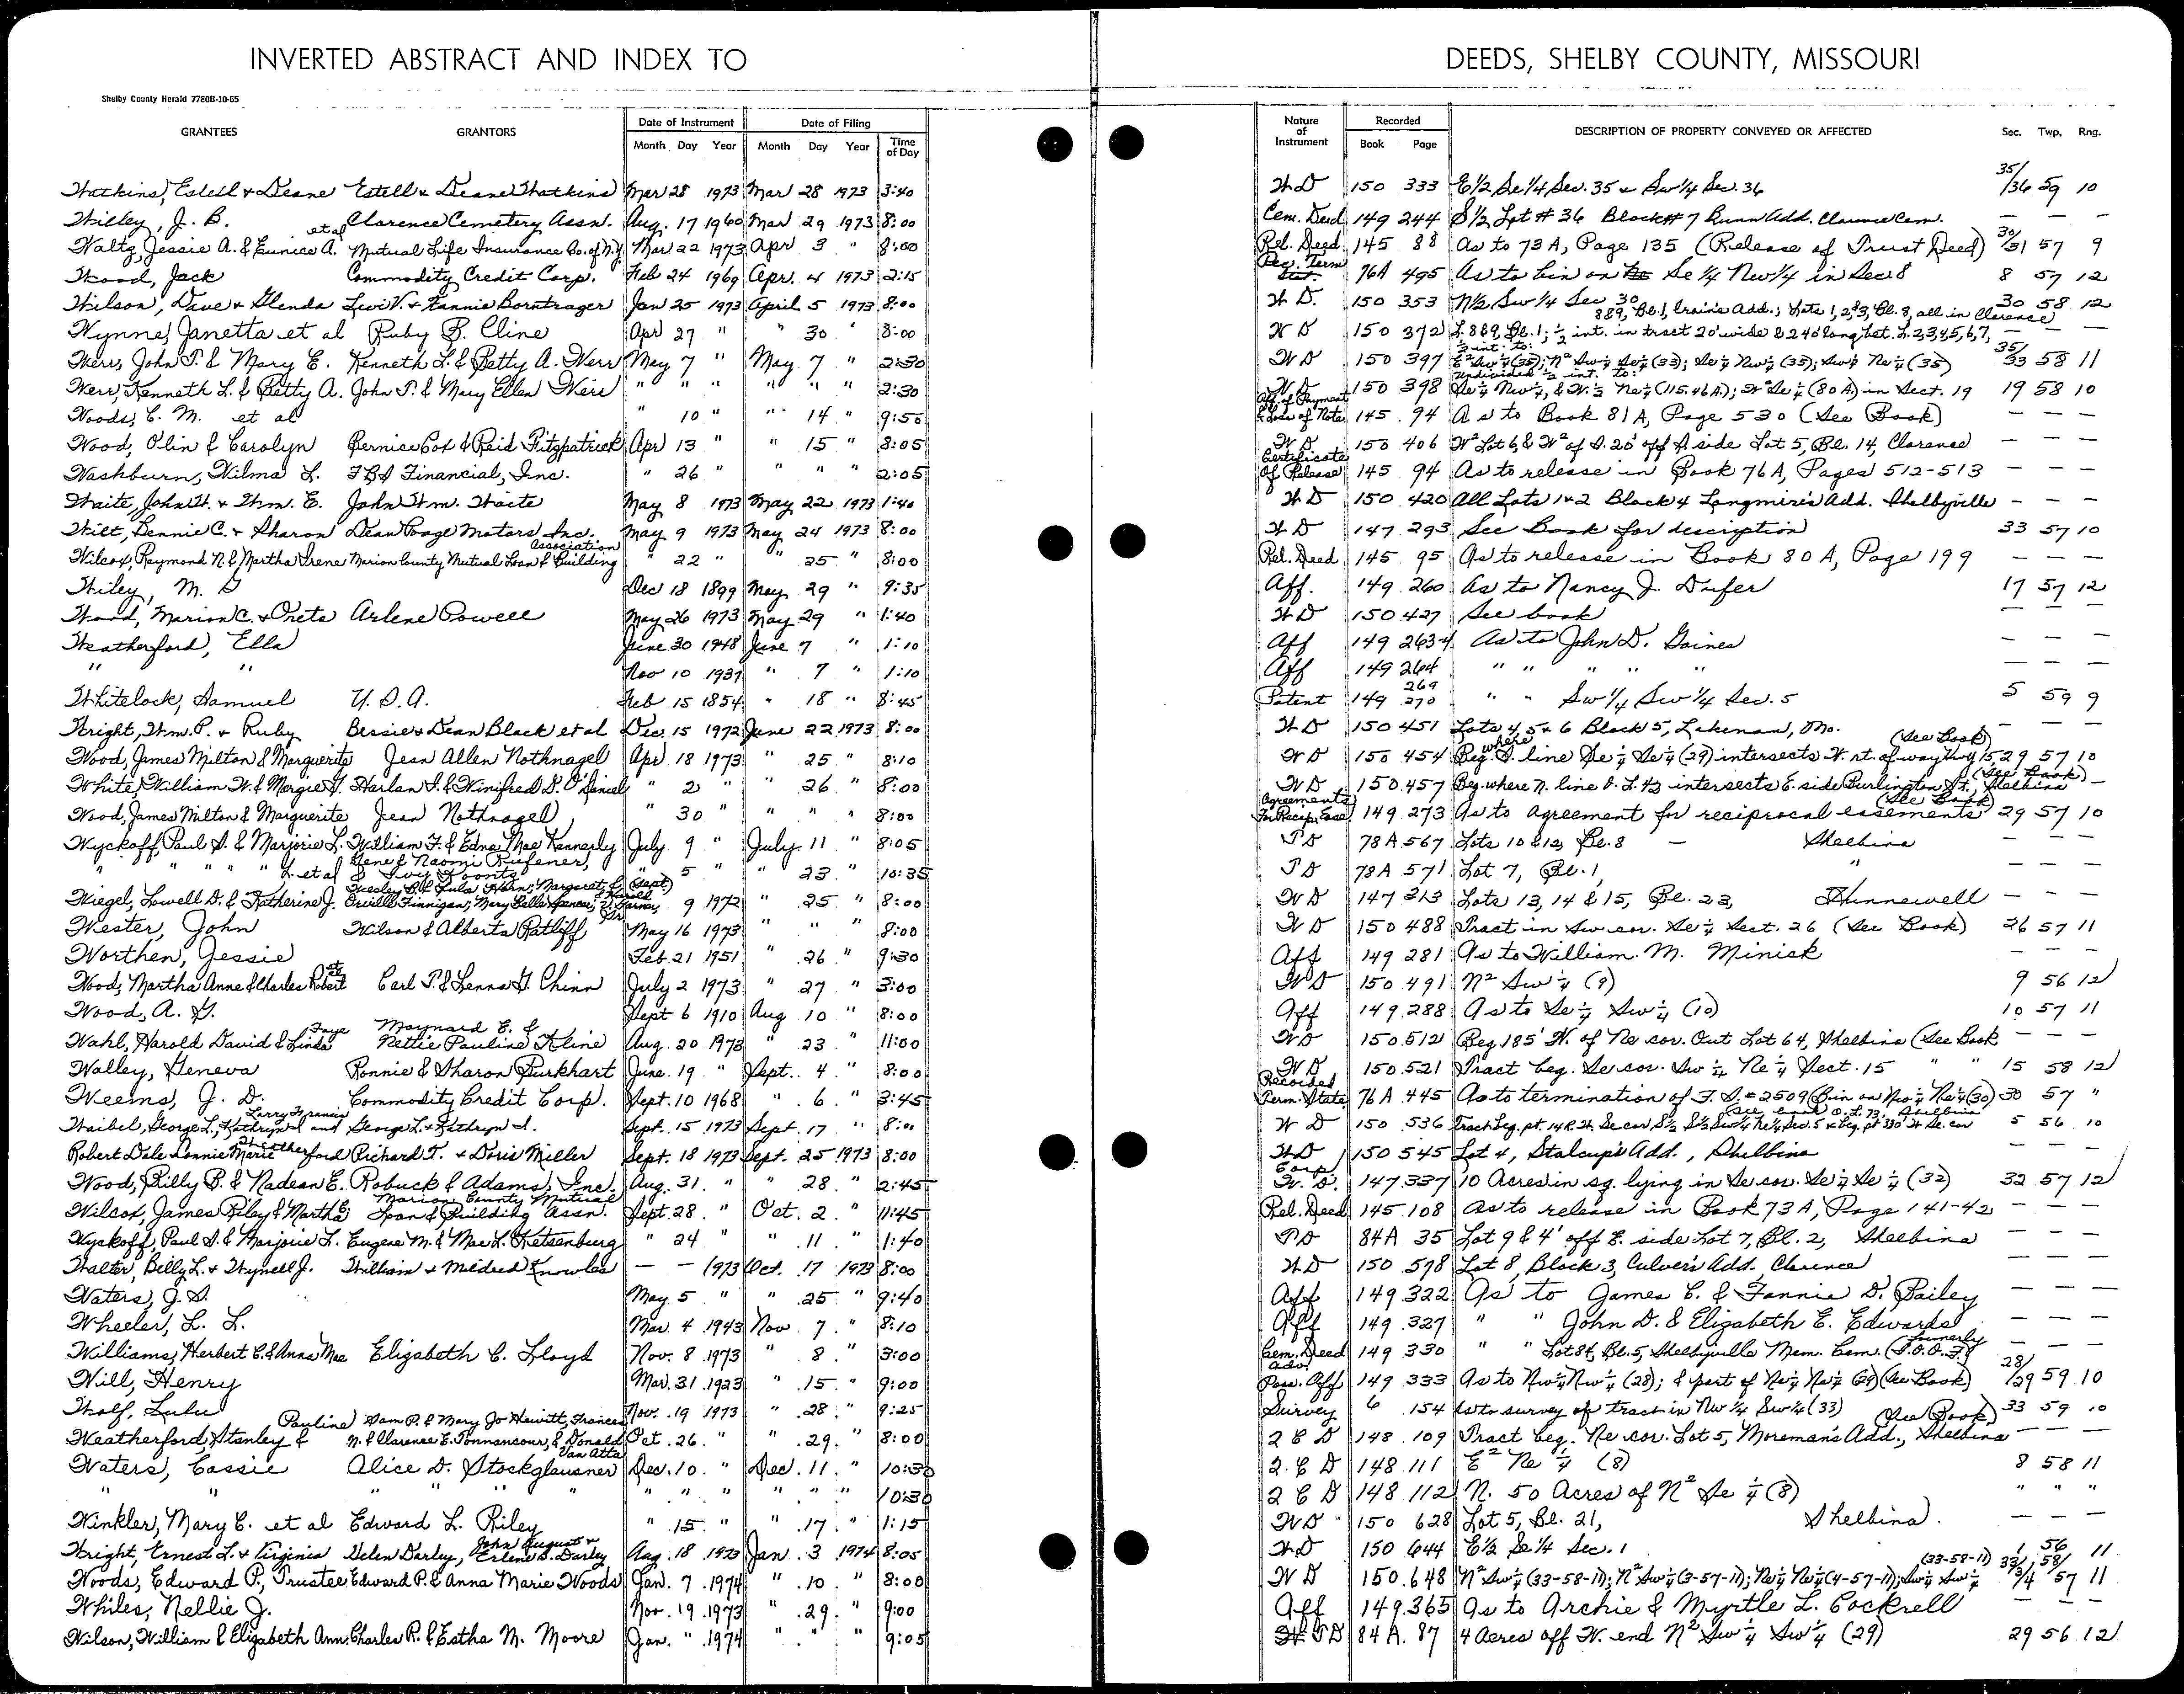 INVERTED ABSTRACT AND INDEX TO DEEDS, SHELBY COUNTY, MISSOURI
Shelby County Herald 7780B-10-65
GRANTEES GRANTORS Date of Instrument Month Day Year Date of Filing Month Day Year Time of Day Nature of Instrument Recorded Book Page DESCRIPTION OF PROPERTY CONVEYED OR AFFECTED Sec. Twp. Rng.
Watkins, Estell & Deane Estell & Deane Watkins Mar 28 1973 Mar 28 1973 3:40 W D 150 333 E1/2 Se1/4 Sec. 35 & Sw1/4 Sec. 36 35/36 59 10
Willey, J. B. Clarence Cemetery Assn. Aug. 17 1960 Mar 29 1973 8:00 Cem. Deed 149 244 S1/2 Lot #36 Block #7 Bunn Add. Clarence Cem. — — —
Waltz, Jessie A. & Eunice A. et al Mutual Life Insurance Co. of N.Y. Mar 22 1973 Apr 3 " 8:00 Rel. Deed 145 88 As to 73A, Page 135 (Release of Trust Deed) 30/31 57 9
Wood, Jack Commodity Credit Corp. Feb 24 1969 Apr. 4 1973 2:15 Rec. Term 76A 495 As to bin on Se 1/4 Nw1/4 in Sec 8 8 57 12
Wilson, Dave & Glenda Levi V. & Fannie Borntrager Jan 25 1973 April 5 1973 8:00 W D. 150 353 N1/2 Sw 1/4 Sec 30 30 58 12
Wynne, Janetta et al Ruby B. Cline Apr 27 " " 30 " 8:00 W D 150 372 L. 8&9, Bl. 1; 1/2 int. in tract 20' wide & 240' long bet. L. 2,3,4,5,6,7, 8&9, Bl. 1, Crain's Add.; Lots 1, 2, &3, Bl. 8, all in Clarence — — —
Werr, John T. & Mary E. Kenneth L. & Betty A. Werr May 7 " May 7 " 2:30 W D 150 397 1/2 int. to: E2 Sw1/4 (35); N2 Sw1/4 Se1/4 (33); Se1/4 Nw1/4 (35); Sw1/4 Ne1/4 (35) 35/33 58 11
Werr, Kenneth L. & Betty A. John T. & Mary Ellen Werr " " " " " " 2:30 W D 150 398 Undivided 1/2 int. to: Se1/4 Nw1/4, & W. 1/2 Ne1/4 (115.46A); W2 Se1/4 (80A) in Sect. 19 19 58 10
Woods, C. M. et al " 10 " " 14 " 9:50 Aff. of Payment & Loss of Note 145 94 As to Book 81A, Page 530 (See Book) — — —
Wood, Olin & Carolyn Bernice Cox & Reid Fitzpatrick Apr 13 " " 15 " 8:05 W D 150 406 W2 Lot 6, & W2 of S. 20' off A side Lot 5, Bl. 14, Clarence — — —
Washburn, Wilma L. FBS Financial, Inc. " 26 " " " " 2:05 Certificate Of Release 145 94 As to release in Book 76A, Pages 512-513 — — —
Waite, John W. & Wm. E. John Wm. Waite May 8 1973 May 22 1973 1:40 W D 150 420 All Lots 1&2 Block 4 Longmire's Add. Shelbyville — — —
Wilt, Bennie C. & Sharon Dean Poage Motors Inc. May 9 1973 May 24 1973 8:00 W D 147 293 See Book for description 33 57 10
Wilcox, Raymond N. & Martha Irene Marion County Mutual Loan & Building Association " 22 " " 25 " 8:00 Rel. Deed 145 95 As to release in Book 80A, Page 199 — — —
Wiley, M. G Dec 18 1899 May 29 " 9:35 Aff. 149 260 As to Nancy J. Dufer 17 57 12
Wood, Marion C. & Oneta Arlene Powell May 26 1973 May 29 " 1:40 W D 150 427 See book — — —
Weatherford, Ella June 30 1948 June 7 " 1:10 Aff 149 263-4 As to John D. Gaines — — —
" " Nov 10 1937 " 7 " 1:10 Aff 149 264 " " " " — — —
Whitelock, Samuel U. S. A. Feb 15 1854 " 18 " 8:45 Patent 149 269 270 " " Sw 1/4 Sw 1/4 Sec. 5 5 59 9
Wright, Wm. P. & Ruby Bessie & Dean Black et al Dec. 15 1972 June 22 1973 8:00 W D 150 451 Lots 4, 5 & 6 Block 5, Lakenan, Mo. — — —
Wood, James Milton & Marguerite Jean Allen Nothnagel Apr 18 1973 " 25 " 8:10 W D 150 454 Beg. where S. line Se 1/4 Se1/4 (29) intersects W. rt. of way Hwy 15, (See Book) 29 57 10
White, William W. & Margie G. Harlan T. & Winifred D. O'Daniel " 2 " " 26 " 8:00 W D 150 457 Beg. where N. line O. L. 43 intersects E. side Burlington St., Shelbina (See Book) —
Wood, James Milton & Marguerite Jean Nothnagel " 30 " " " " 8:00 Agreements For Recip. Ease. 149 273 As to agreement for reciprocal easements (See Book) 29 57 10
Wyckoff, Paul S. & Marjorie L. William F. & Edna Mae Kennerly July 9 " July 11 " 8:05 T D 78A 567 Lots 10 & 12, Bl. 8 — Shelbina — — —
" " " " L. et al Gene & Naomi Rufener, & Ivy Koontz " 5 " " 23 " 10:35 T D 78A 571 Lot 7, Bl. 1, " — — —
Wiegel, Lowell D. & Katherine J. Orville Finnigan; Mary Belle Spencer, (Sept) 9 1972 " 25 " 8:00 W D 147 313 Lots 13, 14 & 15, Bl. 23, Hunnewell — — —
Wester, John Wilson & Alberta Ratliff May 16 1973 " " " 8:00 W D 150 488 Tract in Sw cor. Se 1/4 Sect. 26 (See Book) 26 57 11
Worthen, Jessie Feb. 21 1951 " 26 " 9:30 Aff 149 281 As to William M. Minick — — —
Wood, Martha Anne & Charles Robert Carl T. & Lenna G. Chinn July 2 1973 " 27 " 3:00 W D 150 491 N2 Sw 1/4 (9) 9 56 12
Wood, A. G. Sept 6 1910 Aug 10 " 8:00 Aff 149 288 As to Se 1/4 Sw 1/4 (10) 10 57 11
Wahl, Harold David & Linda Faye Maynard E. & Nettie Pauline Kline Aug. 20 1973 " 23 " 11:00 W D 150 512 Beg. 185' W. of Ne cor. Out Lot 64, Shelbina (See Book — — —
Walley, Geneva Ronnie & Sharon Burkhart June 19 " Sept. 4 " 8:00 W D 150 521 Tract beg. Se cor. Sw 1/4 Ne 1/4 Sect. 15 " " 15 58 12
Weems, J. D. Commodity Credit Corp. Sept. 10 1968 " 6 " 3:45 Recorded Term. State. 76A 445 As to termination of F. S. #2509 (Bin on Nw 1/4 Ne1/4 (30) 30 57 "
Waibel, George L., Kathryn I. and Larry Francis George L. & Kathryn I. Sept. 15 1973 Sept. 17 " 8:00 W D 150 536 Tract beg. pt. 14 R. W. Se cor. S1/2 S1/2 Sw1/4 Ne1/4 Sec. 5 & beg. pt 330' W Se. cor 5 56 10
Robert Dale Lonnie Marie Weatherford Richard T. & Doris Miller Sept. 18 1973 Sept. 25 1973 8:00 W D 150 545 Lot 4, Stalcup's Add., Shelbina — —
Wood, Billy B. & Nadean E. Robuck & Adams, Inc. Aug. 31 " " 28 " 2:45 Corp W. D. 147 337 10 Acres in sq. lying in Se cor. Se 1/4 Se 1/4 (32) 32 57 12
Wilcox, James Riley & Martha E. Marion County Mutual Loan & Building Assn. Sept. 28 " Oct. 2 " 11:45 Rel. Deed 145 108 As to release in Book 73A, Page 141-42 — — —
Wyckoff, Paul S. & Marjorie L. Eugene M. & Mae L. Ketsenburg " 24 " " 11 " 1:40 T D 84A 35 Lot 9 & 4' off E. side Lot 7, Bl. 2, Shelbina — — —
Walter, Billy L. & Wynell J. William & Mildred Knowles — — 1973 Oct. 17 1973 8:00 W D 150 578 Lot 8, Block 3, Culver's Add. Clarence — — —
Waters, J. S. May 5 " " 25 " 9:40 Aff 149 322 As to James C. & Fannie D. Bailey — — —
Wheeler, L. L. Mar 4 1943 Nov 7 " 8:10 Aff 149 327 " " John D. & Elizabeth E. Edwards — — —
Williams, Herbert C. & Anna Mae Elizabeth C. Lloyd Nov. 8 1973 " 8 " 3:00 Cem. Deed 149 330 " " Lot 84, Bl. 5, Shelbyville Mem. Cem. (formerly I.O.O.F.) — — —
Will, Henry Mar. 31 1923 " 15 " 9:00 Adv. Poss. Aff 149 333 As to Nw1/4 Nw 1/4 (28); & part of Ne1/4 Ne1/4 (29) (See Book) 28/29 59 10
Wolf, Lulu Nov. 19 1973 " 28 " 9:25 Survey 6 154 As to survey of tract in Nw 1/4 Sw 1/4 (33) 33 59 10
Weatherford, Stanley & Pauline Sam P. & Mary Jo Hewitt, Frances N. & Clarence E. Tonnancour, & Donald Van Atta Oct. 26 " " 29 " 8:00 2 C D 148 109 Tract beg. Ne cor. Lot 5, Moreman's Add., Shelbina (See Book) — — —
Waters, Cassie Alice D. Stockglausner Dec. 10 " Dec. 11 " 10:30 2 C D 148 111 E2 Ne 1/4 (8) 8 58 11
" " " " " " " " " " " " 10:30 2 C D 148 112 N. 50 Acres of N2 Se 1/4 (8) " " "
Winkler, Mary C. et al Edward L. Riley " 15 " " 17 " 1:15 W D 150 628 Lot 5, Bl. 21, Shelbina — — —
Wright, Ernest L. & Virginia Helen Darley, John August & Erlene B. Darley Aug. 18 1973 Jan. 3 1974 8:05 W D 150 644 E1/2 Se 1/4 Sec. 1 1 56 11
Woods, Edward P., Trustee Edward P. & Anna Marie Woods Jan. 7 1974 " 10 " 8:00 W D 150 648 N2 Sw1/4 (33-58-11); N2 Sw1/4 (3-57-11); Ne1/4 Ne1/4 (4-57-11); Sw1/4 Sw1/4 (33-58-11) 33/3/4 58/57 11
Whiles, Nellie J. Nov. 19 1973 " 29 " 9:00 Aff 149 365 As to Archie & Myrtle L. Cockrell — — —
Wilson, William & Elizabeth Ann Charles R. & Estha M. Moore Jan. " 1974 " " " 9:05 T D 84A 87 4 Acres off W. end N2 Sw 1/4 Sw 1/4 (29) 29 56 12